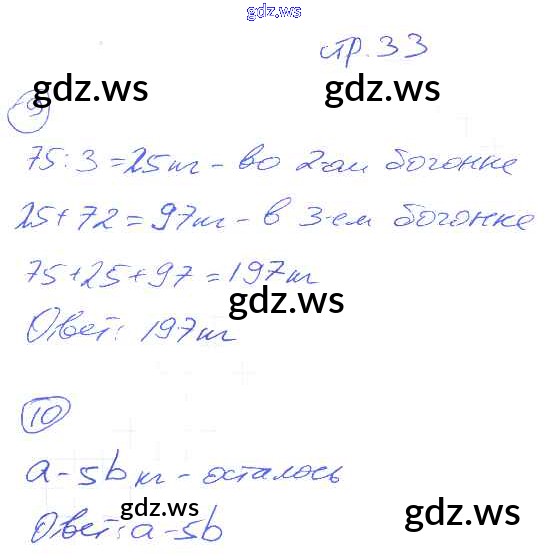 gdz.ws
стр. 33
gdz.ws gdz.ws
9
75:3=25кг - во 2-ом богонке
25+72=97кг - в 3-ем богонке
75+25+97=197кг
gdz.ws
Ответ: 197кг
10
a-5b кг - осталось
gdz.ws gdz.ws
Ответ: a-5b